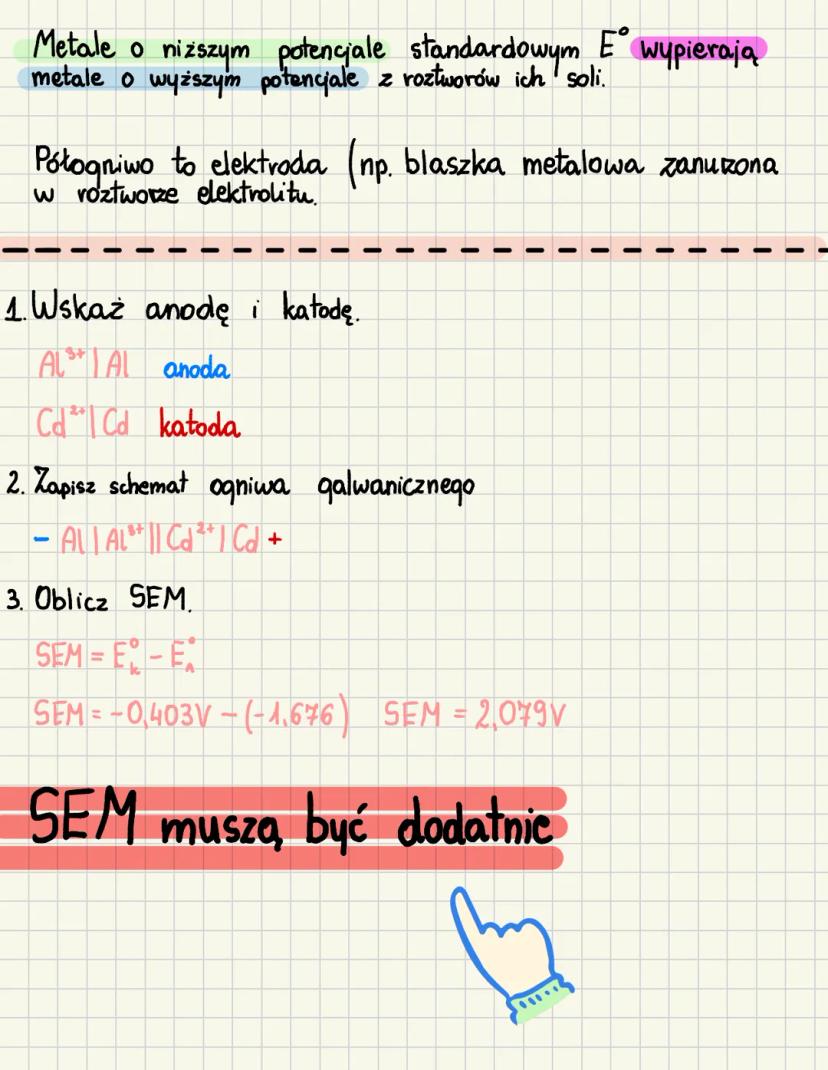 Metale o niższym potencjale standardowym E° wypierają
metale o wyższym potencjale z roztworów ich soli.
Półogniwo to elektroda (np. blaszka metalowa zanurzona
w roztworze elektrolitu.
1. Wskaż anodę i katodę.
Al³⁺ | Al anoda
Cd²⁺ | Cd katoda
2. Zapisz schemat ogniwa galwanicznego
- Al | Al³⁺ || Cd²⁺ | Cd +
3. Oblicz SEM.
SEM = E°ₖ - E°ₐ
SEM = -0,403V - (-1,676) SEM = 2,079V
SEM muszą być dodatnie